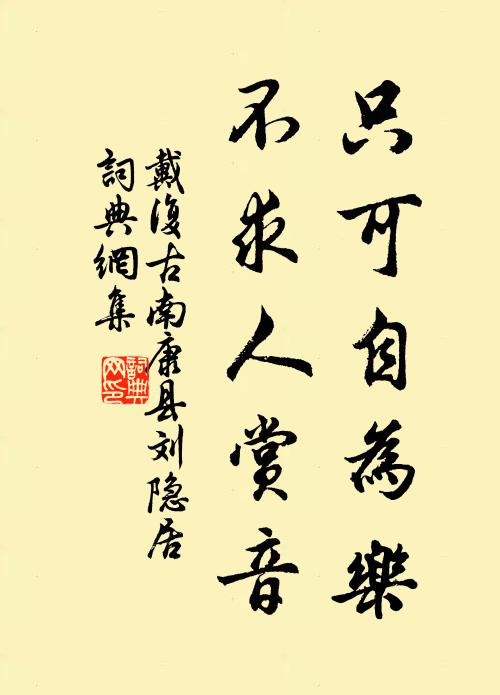 只可自為樂
不求人賞音
戴復古南康县刘隐居
詞典網集
詞典
网印